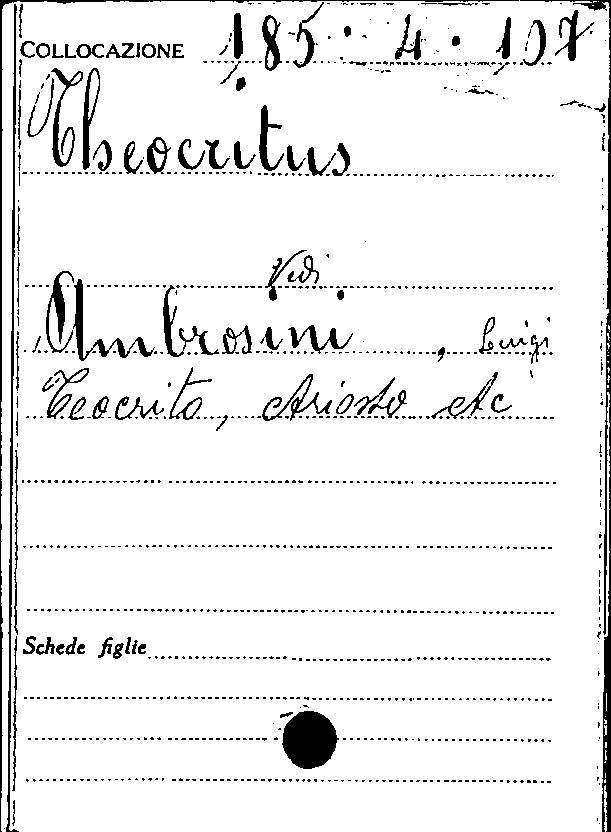 COLLOCAZIONE 185 · 4 · 107
Theocritus
Vedi
Ambrosini, Luigi
Teocrito, Ariosto etc
Schede figlie